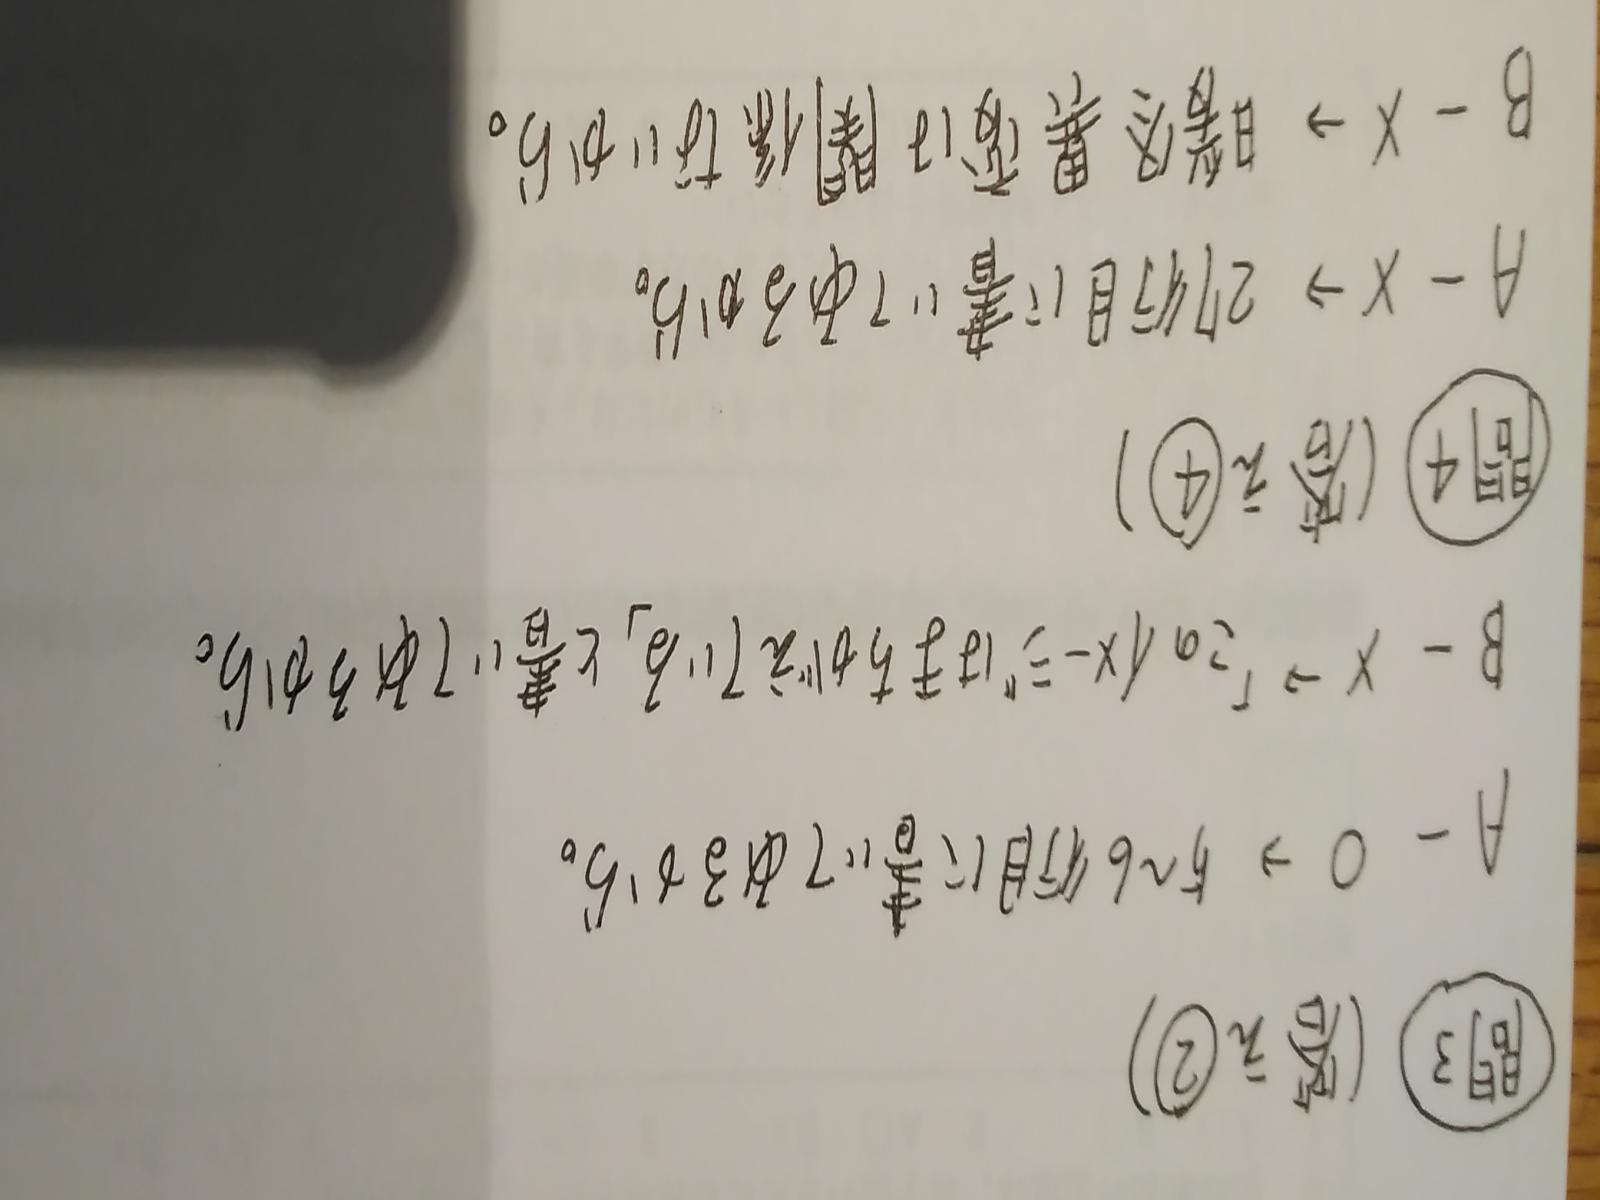 問3 (答え②)
A - O → 5~6行目に書いてあるから。
B - X → 「このイメージはまちがえている」と書いてあるから。
問4 (答え④)
A - X → 27行目に書いてあるから。
B - X → 異変は関係ないから。